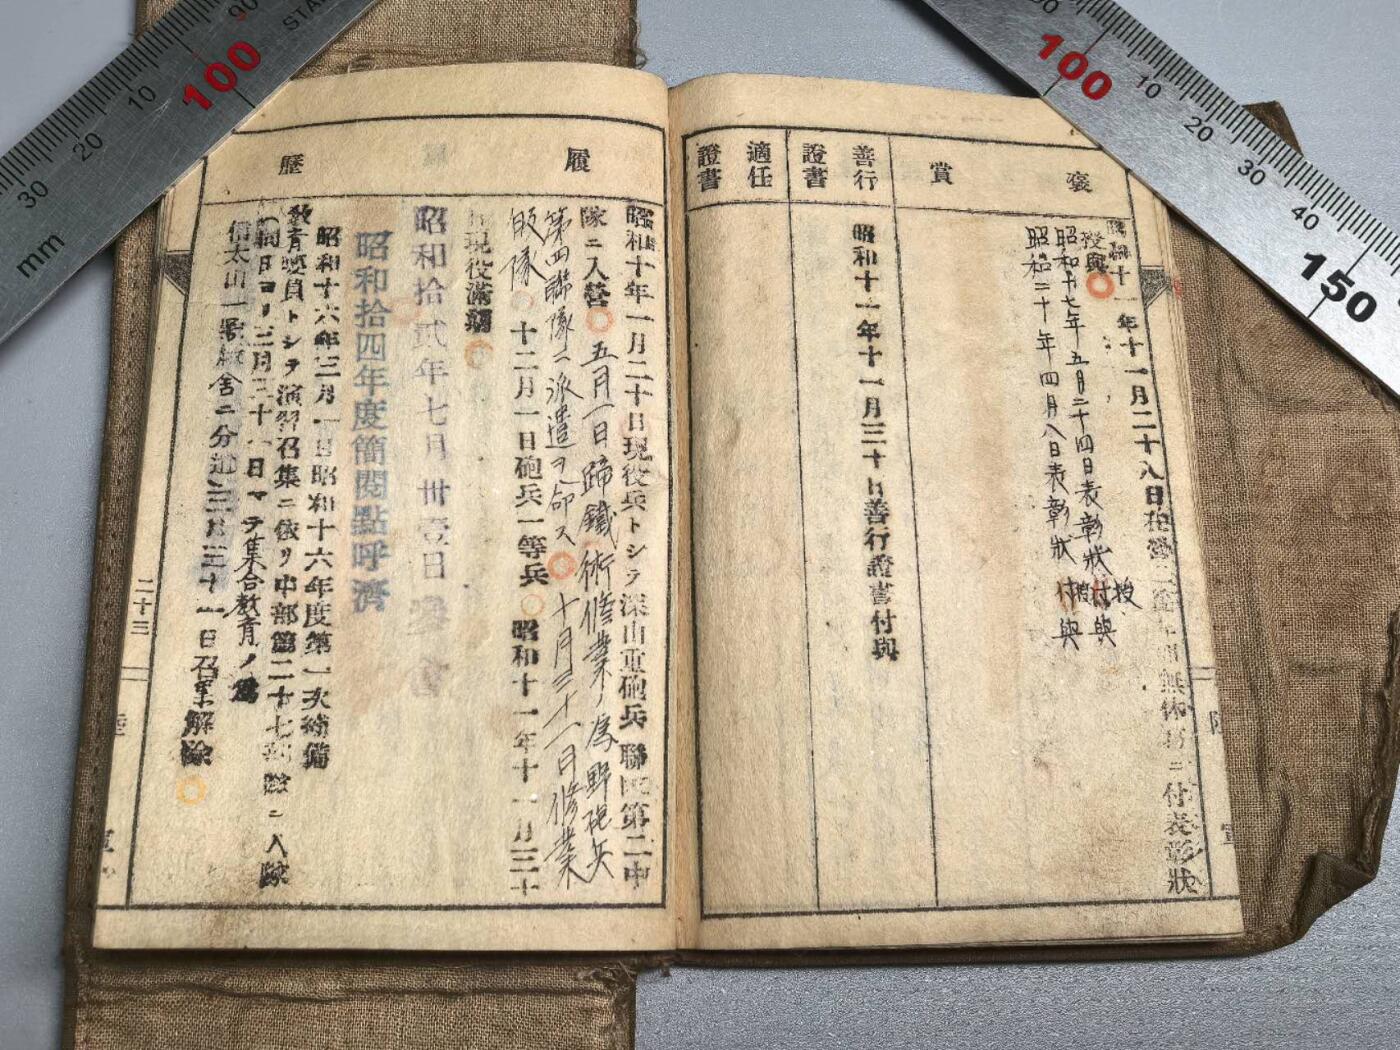 褒賞
昭和十一年十一月二十八日在營二ヶ年間無休者ニ付表彰狀
授與
昭和十七年五月二十四日表彰狀授
付與
昭和二十年四月八日表彰狀
付與
善行證書
昭和十一年十一月三十日善行證書付與
適任證書
履歷
昭和十年一月二十日現役兵トシテ深山重砲兵聯隊第二中
隊ニ入營 五月一日蹄鐵術修業ノ爲野砲兵
第四聯隊ニ派遣ヲ命ス 十月三十一日修業
皈隊 十二月一日砲兵一等兵 昭和十一年十一月三十
日現役滿期
昭和拾貳年七月卅壹日
昭和拾四年度簡閱點呼濟
昭和十六年三月一日昭和十六年度第一次補備
敎育要員トシテ演習召集ニ依リ中部第二十七部隊ニ入隊
同日ヨリ三月三十一日マデ集合敎育ノ爲
信太山一 廠舍ニ分遣 三月三十一日召集解除
二十三
陸
軍
mm 20 30 100 10 90
100 10 20 30 40 150